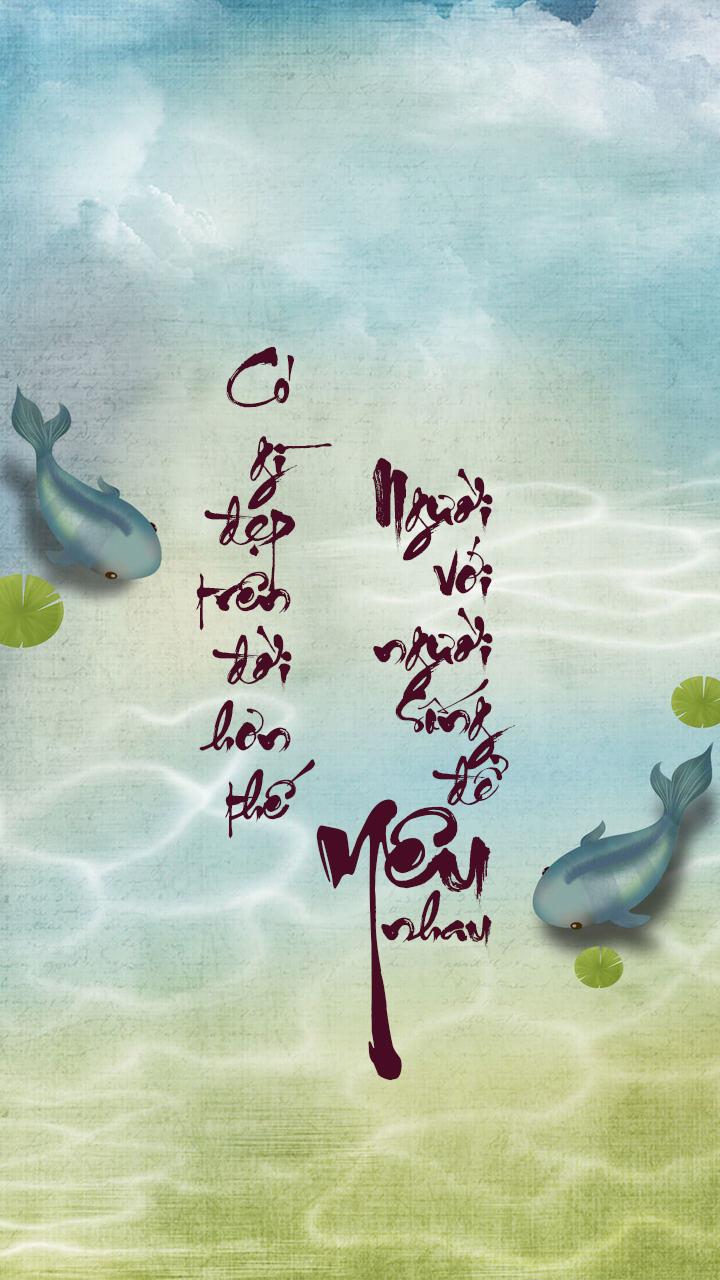 Có
gì
đẹp
trên
đời
hơn
thế
Người
với
người
sống
để
yêu
nhau